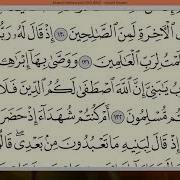 ٱلْأٓخِرَةِ لَمِنَ ٱلصَّٰلِحِينَ ١٣٠ إِذْ قَالَ لَهُۥ رَبُّ
مْتُ لِرَبِّ ٱلْعَٰلَمِينَ ١٣١ وَوَصَّىٰ بِهَآ إِبْرَٰهِـ
بُ يَٰبَنِىَّ إِنَّ ٱللَّهَ ٱصْطَفَىٰ لَكُمُ ٱلدِّينَ فَلَا
م مُّسْلِمُونَ ١٣٢ أَمْ كُنتُمْ شُهَدَآءَ إِذْ حَضَرَ
إِذْ قَالَ لِبَنِيهِ مَا تَعْبُدُونَ مِنۢ بَعْدِى قَا